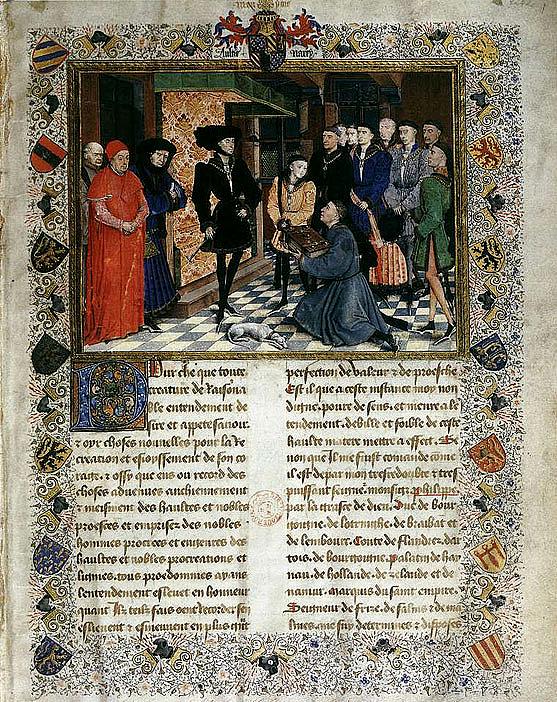 Pour che que toute
creature de Raisona
ble entendement de
sire et appete sauoir
⁊ oyr choses nouuelles pour la Re
creation et esioyssement de son co
rage. ⁊ ossy que ens ou record des
choses aduenues anchiennement
⁊ meisment des haultes et nobles
proesces et emprises des nobles
hommes procrees et engenrés des
haultes et nobles procreations et
lignies. tous proedommes ayans
lentendement esleuet en honneur
quant Ilz telz fais oent recorder sen
esliessent ⁊ esmeuuent en plus grãt
perfection de valeur ⁊ de proesche
Est il que a ceste instance moy non
digne. poure de sens. et mennre de
tendement. debille et foible de ceste
haulte matere mettre a effect. Se
non que Il me fuist commande comme
il est de par mon tresredoubté ⁊ tres
puissant seigneur. monsigneur phelippe.
par la grasce de dieu. Duc de bour
goingne. de lotringhe. de braibat et
de lembourc. Conte de flandre. dar
tois. de bourgoingne. palatin de hay
nau. de hollande. de zelande et de
namur. marquis du saint empire.
Seigneur de frize. de salins ⁊ de ma
lines. me suy determines ⁊ disposes